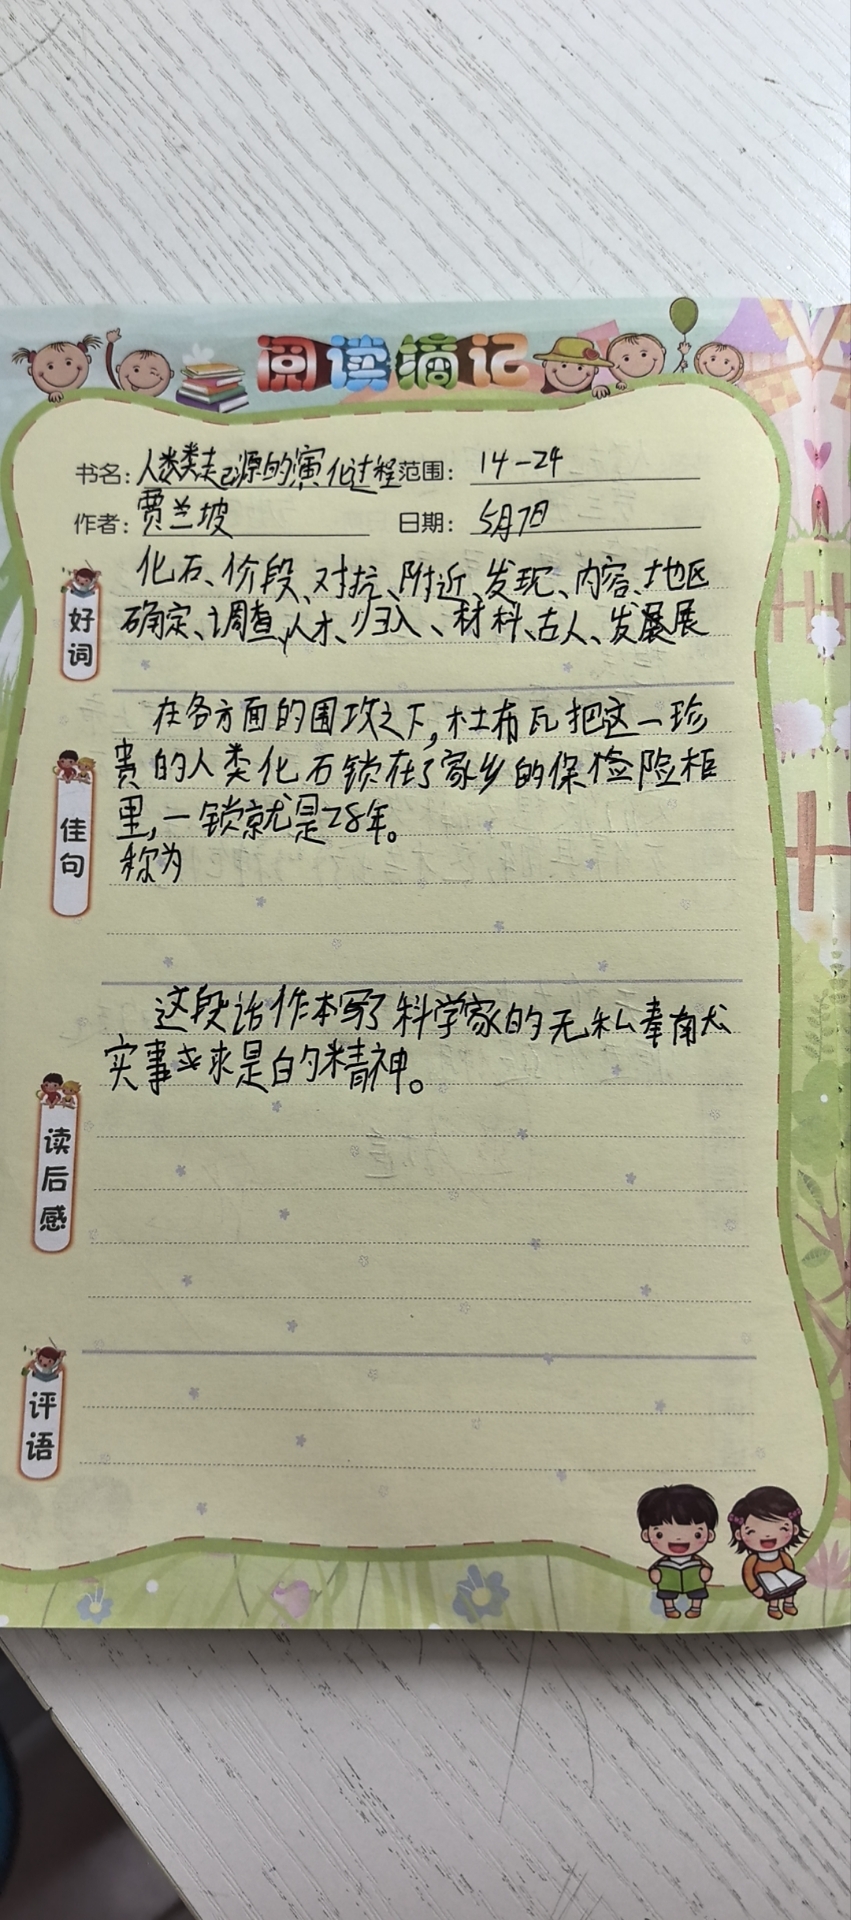 阅读摘记
书名：人类起源的演化过程 范围：14-24
作者：贾兰坡 日期：5月7日
好词
化石、价段、对抗、附近、发现、内容、地区
确定、调查、人才、归入、材料、古人、发展展
佳句
在各方面的围攻之下，杜布瓦把这一珍
贵的人类化石锁在了家乡的保险柜
里，一锁就是28年。
称为
读后感
这段话作本写了科学家的无私奉南犬
实事求是的精神。
评语